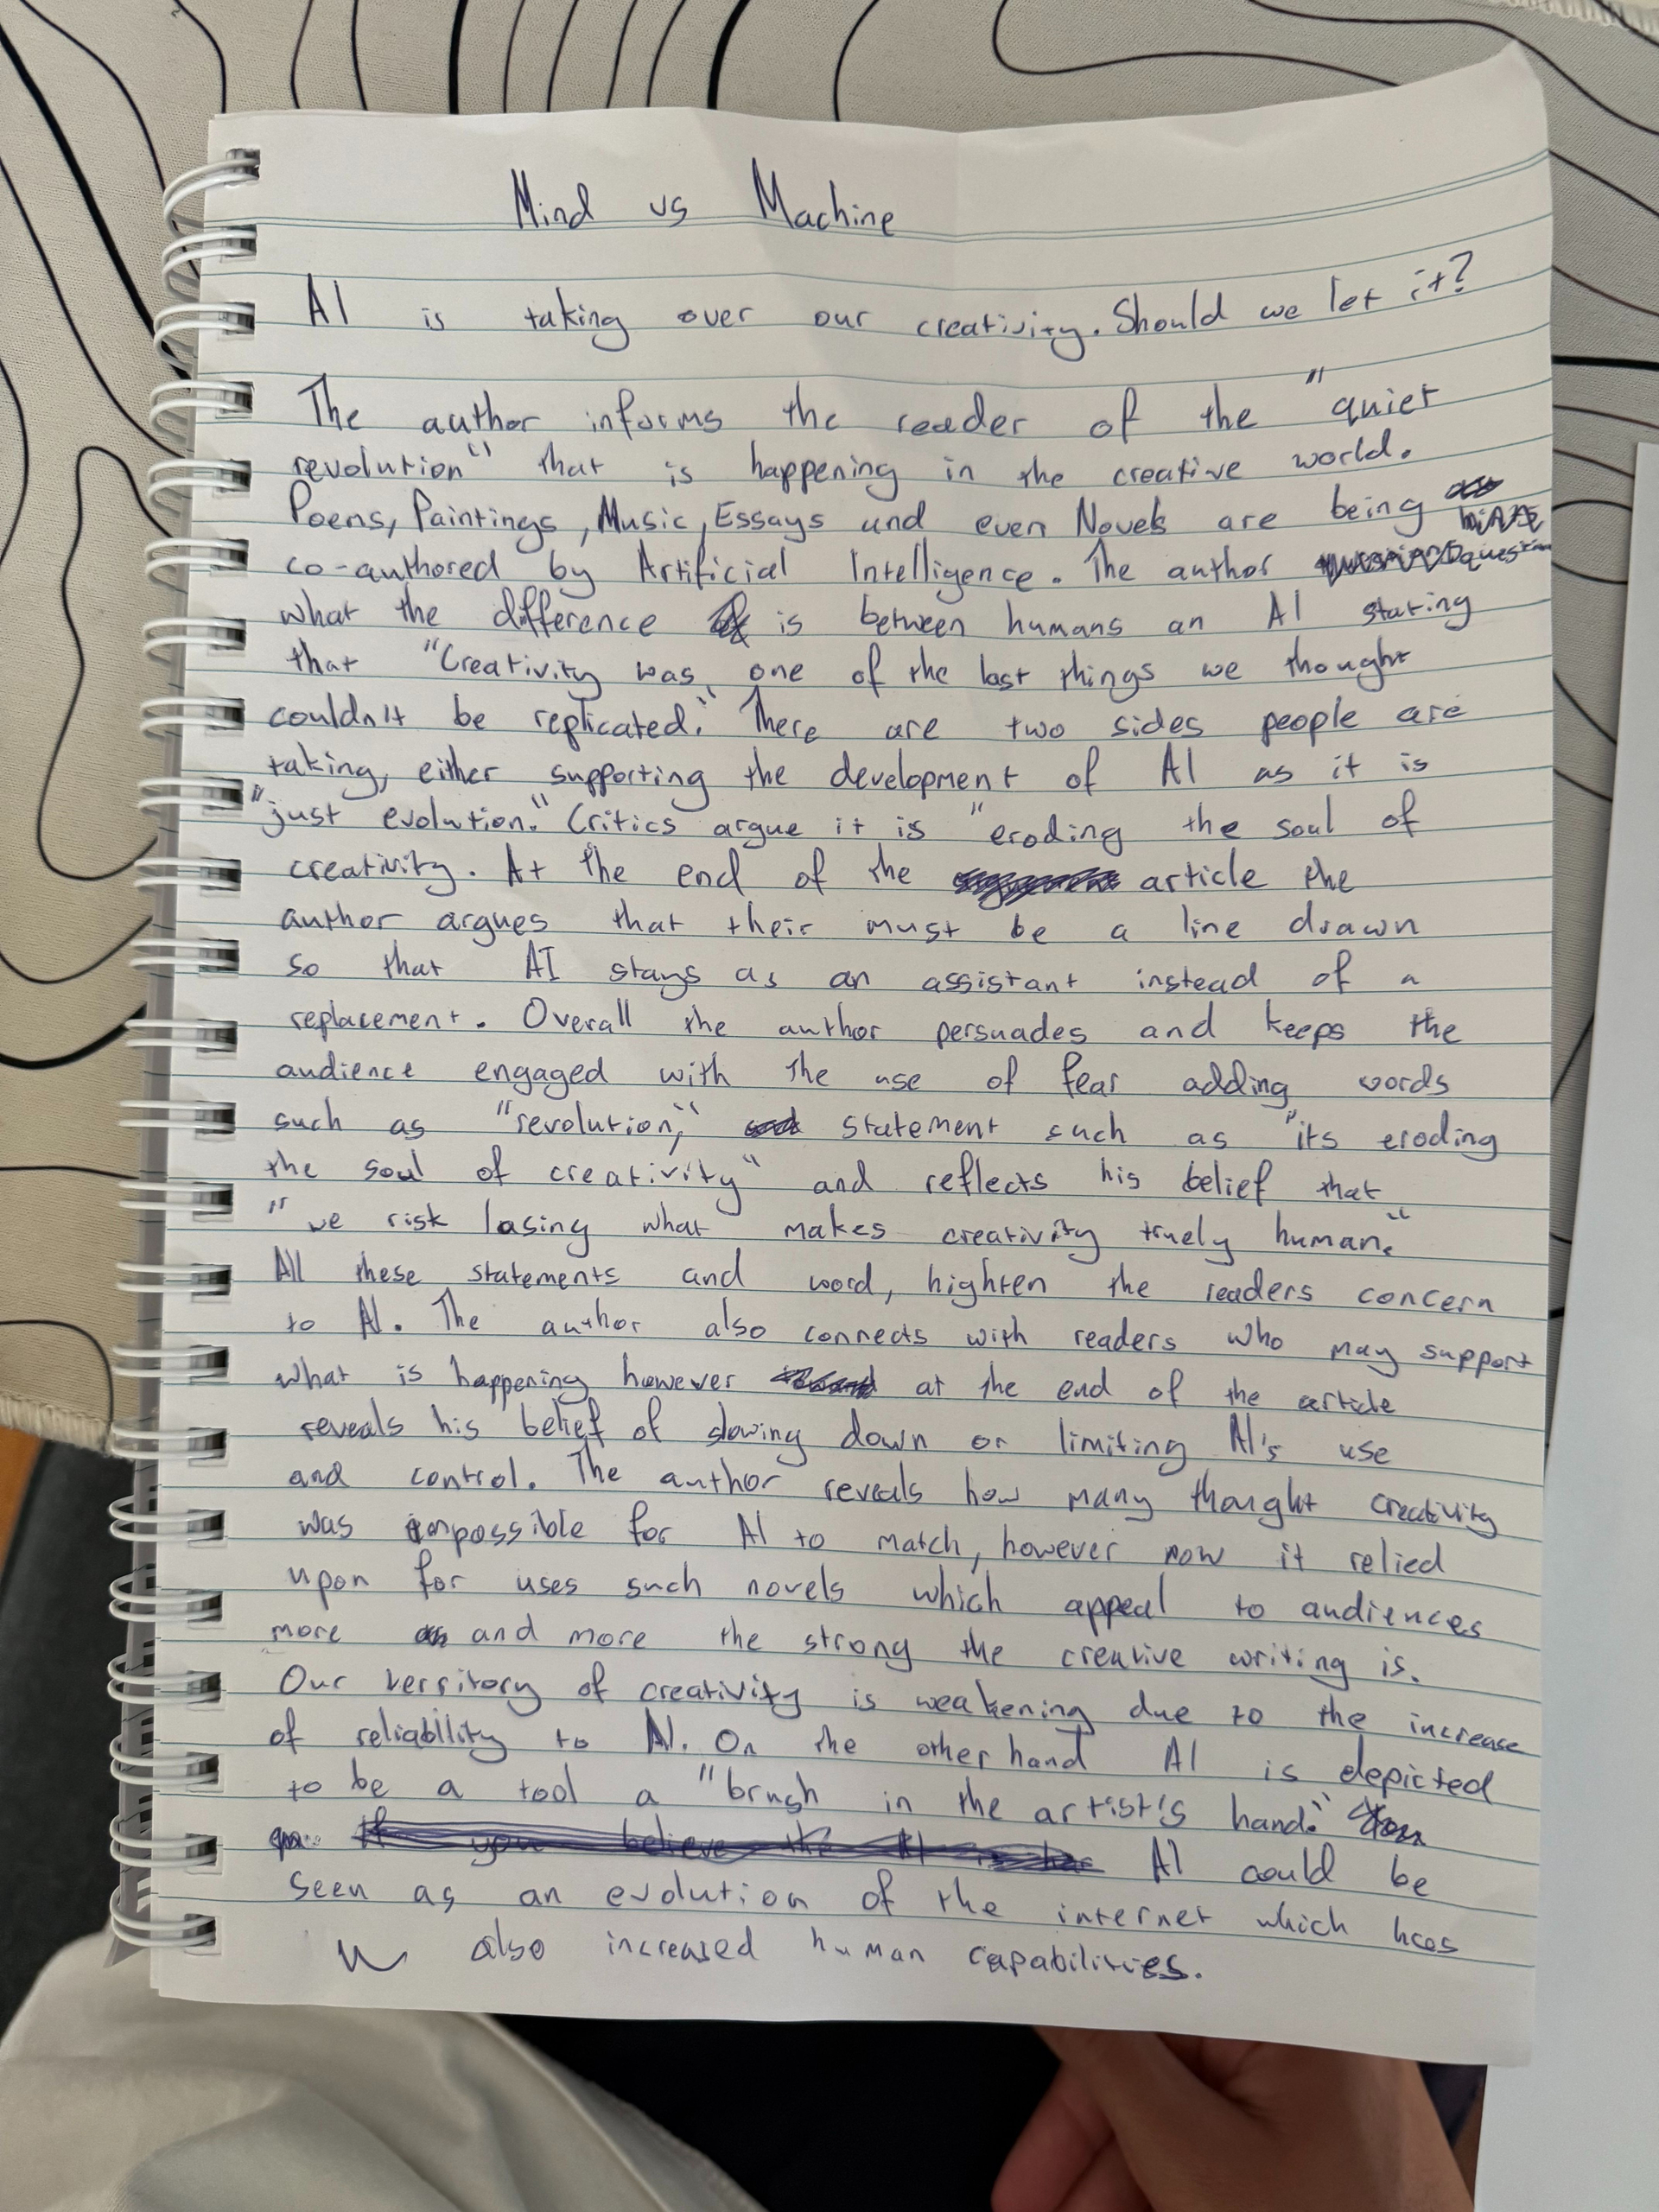 Mind vs Machine
AI is taking over our creativity. Should we let it?
The author informs the reader of the "quiet
revolution" that is happening in the creative world.
Poems, Paintings, Music, Essays and even Novels are being
co-authored by Artificial Intelligence. The author
what the difference is between humans an AI stating
that "Creativity was one of the last things we thought
couldn't be replicated." There are two sides people are
taking, either supporting the development of AI as it is
"just evolution." Critics argue it is "eroding the soul of
creativity. At the end of the article the
author argues that their must be a line drawn
so that AI stays as an assistant instead of a
replacement. Overall the author persuades and keeps the
audience engaged with the use of fear adding words
such as "revolution," statement such as "its eroding
the soul of creativity" and reflects his belief that
"we risk losing what makes creativity truely human."
All these statements and word, highten the readers concern
to AI. The author also connects with readers who may support
what is happening however at the end of the article
reveals his belief of slowing down or limiting AI's use
and control. The author reveals how many thought creativity
was impossible for AI to match, however now it relied
upon for uses such novels which appeal to audiences
more and more the strong the creative writing is.
Our territory of creativity is weakening due to the increase
of reliability to AI. On the other hand AI is depicted
to be a tool a "brush in the artist's hand."
AI could be
seen as an evolution of the internet which has
also increased human capabilities.